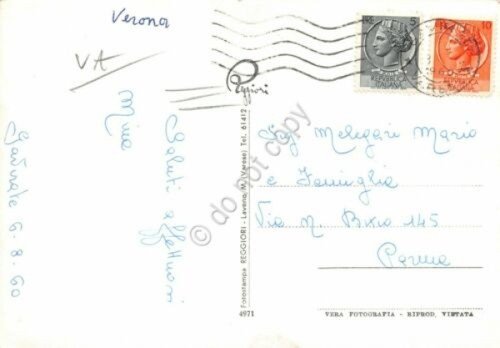 Verona
VA
Gavirate 6.8.60
Saluti affettuosi
Mina
Reggiori
Fotostampa REGGIORI - Laveno M. (Varese) Tel. 61412
4971
5
10
Sig. Melegari Mario
e Famiglia
Via N. Bixio 145
Parma
VERA FOTOGRAFIA - RIPROD. VIETATA
do not copy